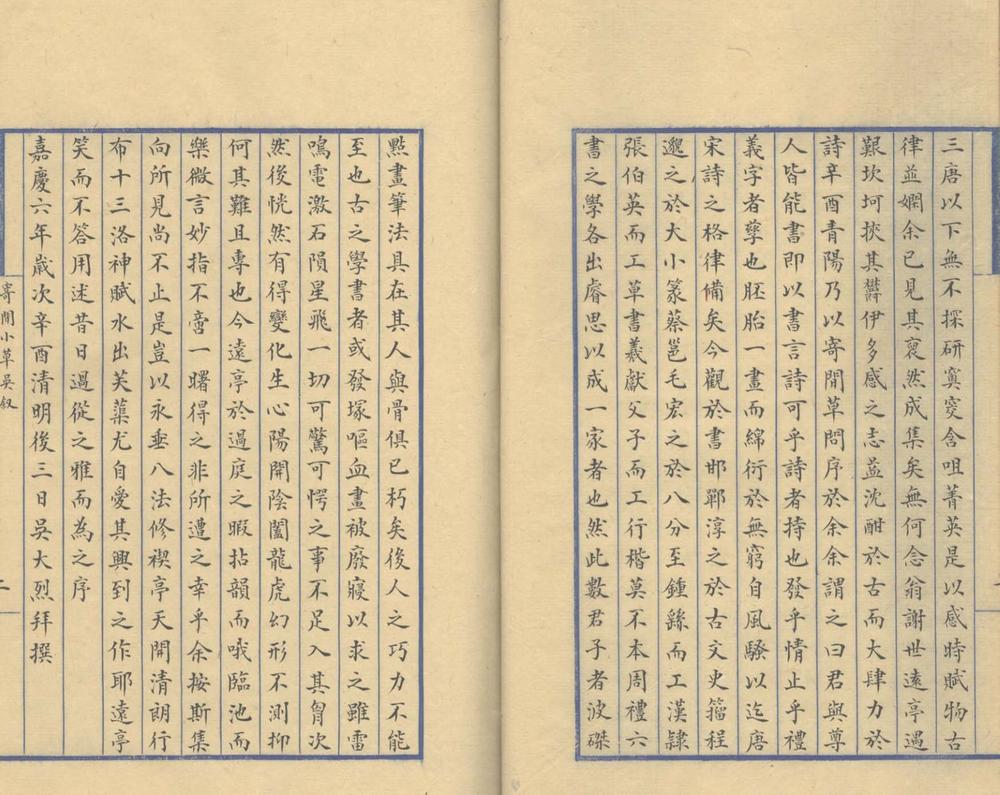 三唐以下無不探研窶窔含咀菁英是以感時賦物古
律並嫻余已見其裒然成集矣無何念翁謝世遠亭遇
艱坎坷挾其欝伊多感之志益沈酣於古而大肆力於
詩辛酉青陽乃以寄閒草問序於余余謂之曰君與尊
人皆能書即以書言詩可乎詩者持也發乎情止乎禮
義字者孳也胚胎一畫而綿衍於無窮自風騷以迄唐
宋詩之格律備矣今觀於書邯鄲淳之於古文史籀程
邈之於大小篆蔡邕毛宏之於八分至鍾繇而工漢隷
張伯英而工草書羲獻父子而工行楷莫不本周禮六
書之學各出睿思以成一家者也然此數君子者波磔
點畫筆法具在其人與骨俱已朽矣後人之巧力不能
至也古之學書者或發塚嘔血畫被廢寢以求之雖雷
鳴電激石隕星飛一切可驚可愕之事不足入其胷次
然後恍然有得變化生心陽開陰闔龍虎幻形不測抑
何其難且專也今遠亭於過庭之暇拈韻而哦臨池而
樂微言妙指不啻一曙得之非所遭之幸乎余按斯集
向所見尚不止是豈以永垂八法修禊亭天開清朗行
布十三洛神賦水出芙蕖尤自愛其興到之作耶遠亭
笑而不答用述昔日過從之雅而為之序
嘉慶六年歲次辛酉清明後三日吳大烈拜撰
寄閒小草吳叙
二